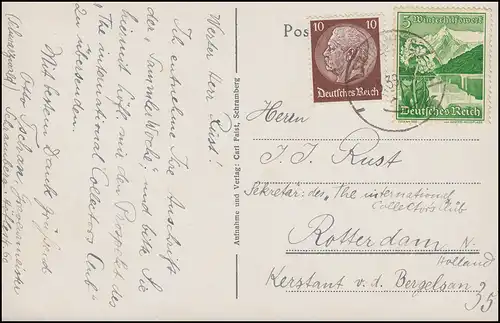 Werter Herr Rust!
Ich entnehme Ihre Anschrift
der „Sammler Woche“, und bitte Sie
hiermit höfl. mir den Prospekt des
„The international Collectors Club“
zu übersenden.
Mit bestem Dank
Otto
(Schwarzwald) Schramberg
Aufnahme und Verlag: Carl Faist, Schramberg
Pos
10 10
Deutsches Reich
5 Winterhilfswerk
Deutsches Reich
Herrn
J. J. Rust
Sekretär: des „The international
Collectors Club
Rotterdam N.
Holland
Kerstant v. d. Bergelsan
35